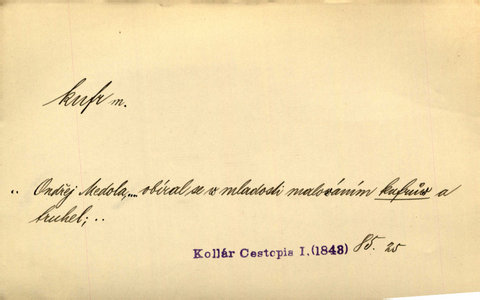 kufr m.
„ Ondřej Medola,... obíral se w mladosti malowáním kufrůw a
truhel; „
Kollár Cestopis I. (1843) 85. 20